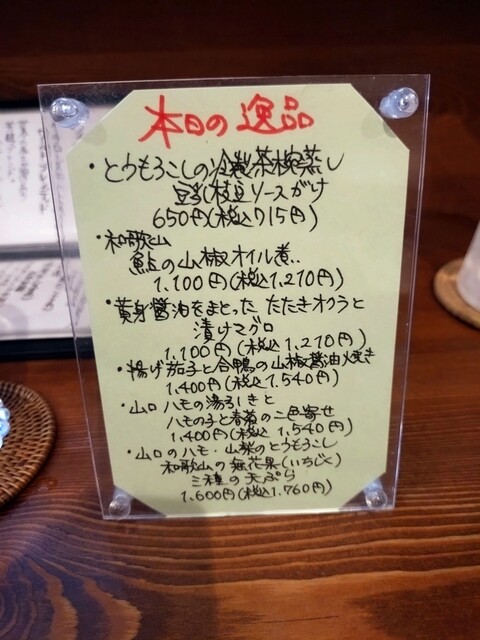 本日の逸品
・とうもろこしの冷製茶椀蒸し
豆乳枝豆ソースがけ
650円(税込715円)
・和歌山
鮎の山椒オイル煮..
1.100円(税込1.210円)
・黄身醤油をまとった たたきオクラと
漬けマグロ
1.100円(税込1.210円)
・揚げ茄子と合鴨の山椒醤油焼き
1.400円(税込1.540円)
・山口 ハモの湯引きと
ハモの子と春菊の二色寄せ
1.400円(税込1.540円)
・山口のハモ・山梨のとうもろこし
和歌山の無花果(いちじく)
三種の天ぷら
1.600円(税込1.760円)